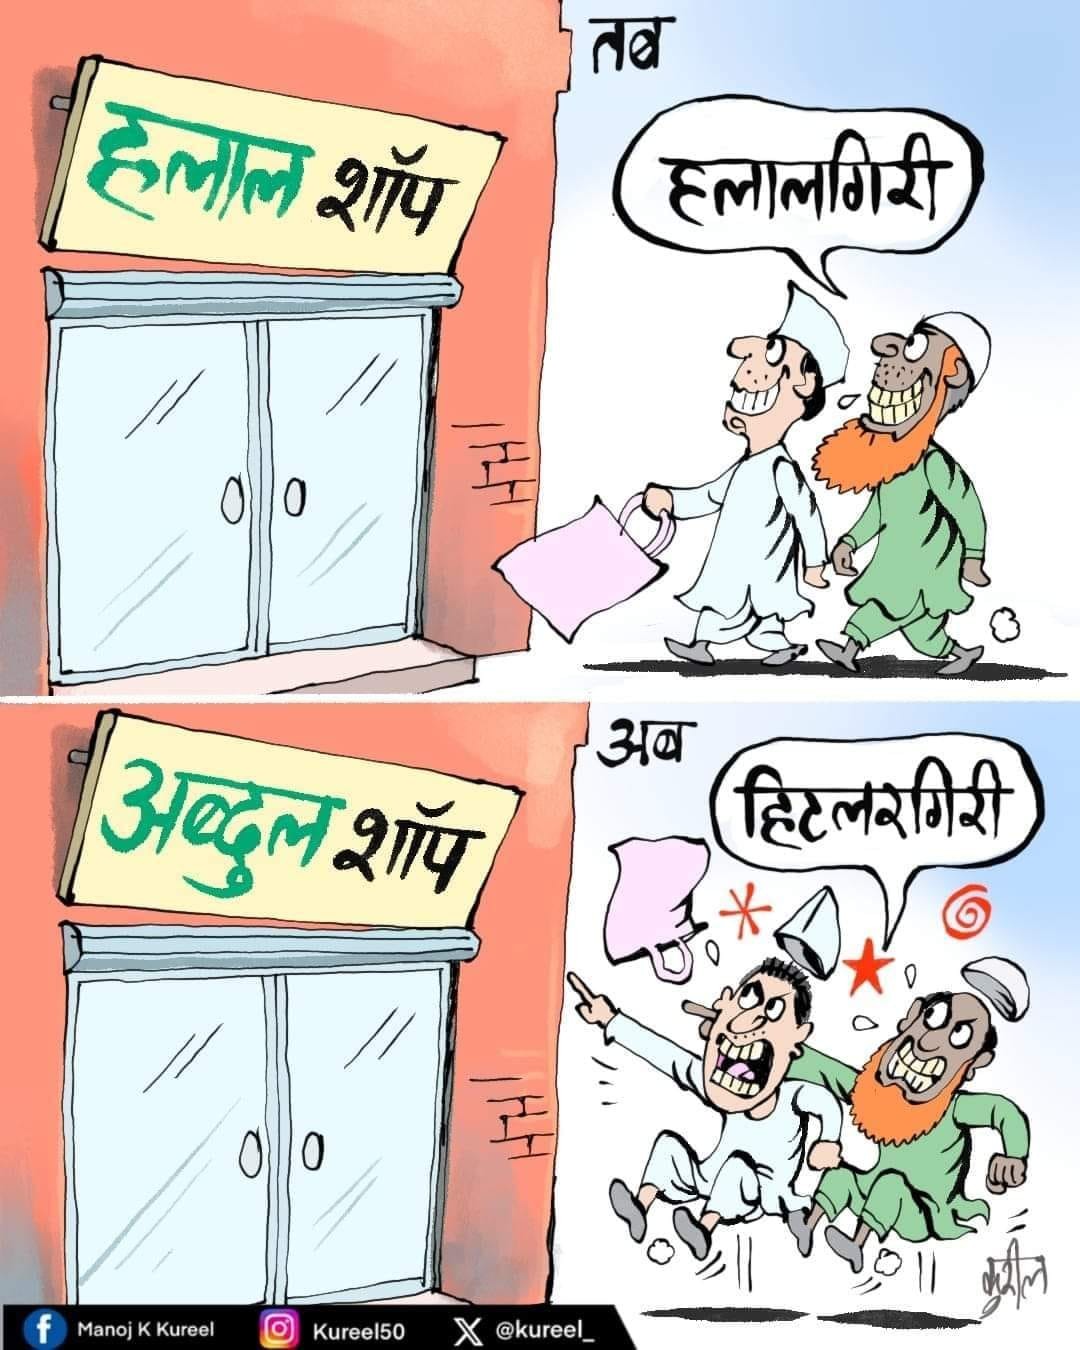 तब
हलाल शॉप
हलालगिरी
अब
अब्दुल शॉप
हिटलरगिरी
कुरील
Manoj K Kureel
Kureel50
@kureel_